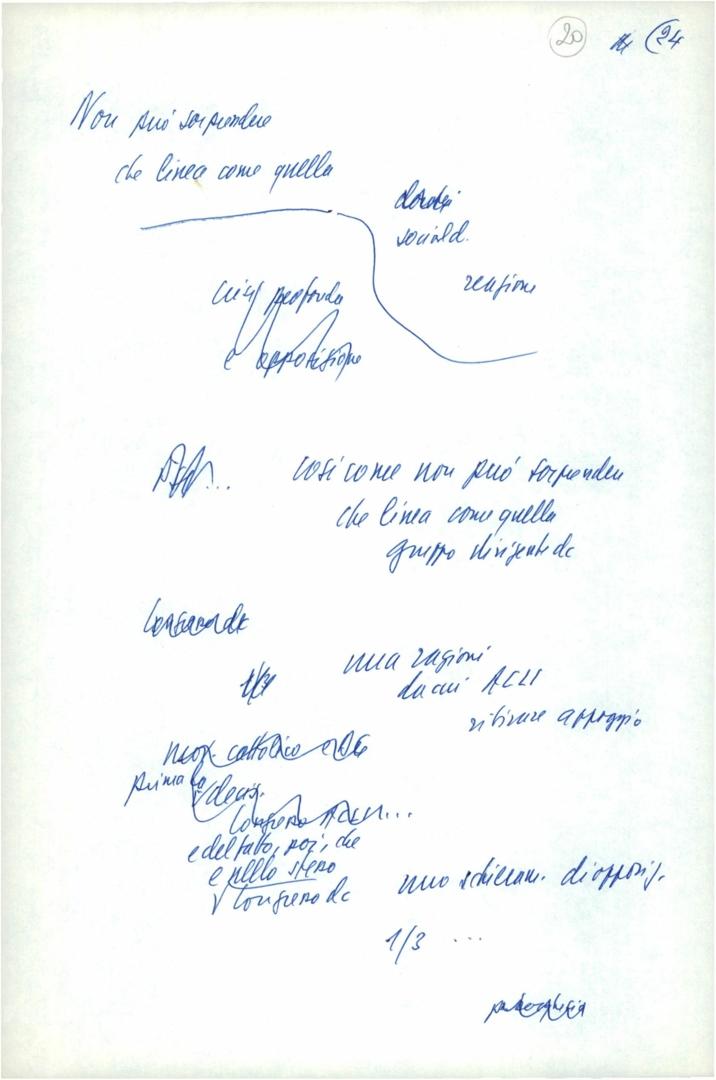 20 24
Non può sorprendere
che linea come quella
dorotei
sociald.
reazione
crisi profonda
e opposizione
così come non può sorprendere
che linea come quella
gruppo dirigente dc
Congresso dc
1/3
una ragioni
da cui ACLI
ritirare appoggio
cattolico
prima la
decis.
Congresso ACLI...
e del fatto, poi, che
e nello stesso
Congresso dc
uno schieram. di opposiz.
1/3 ...